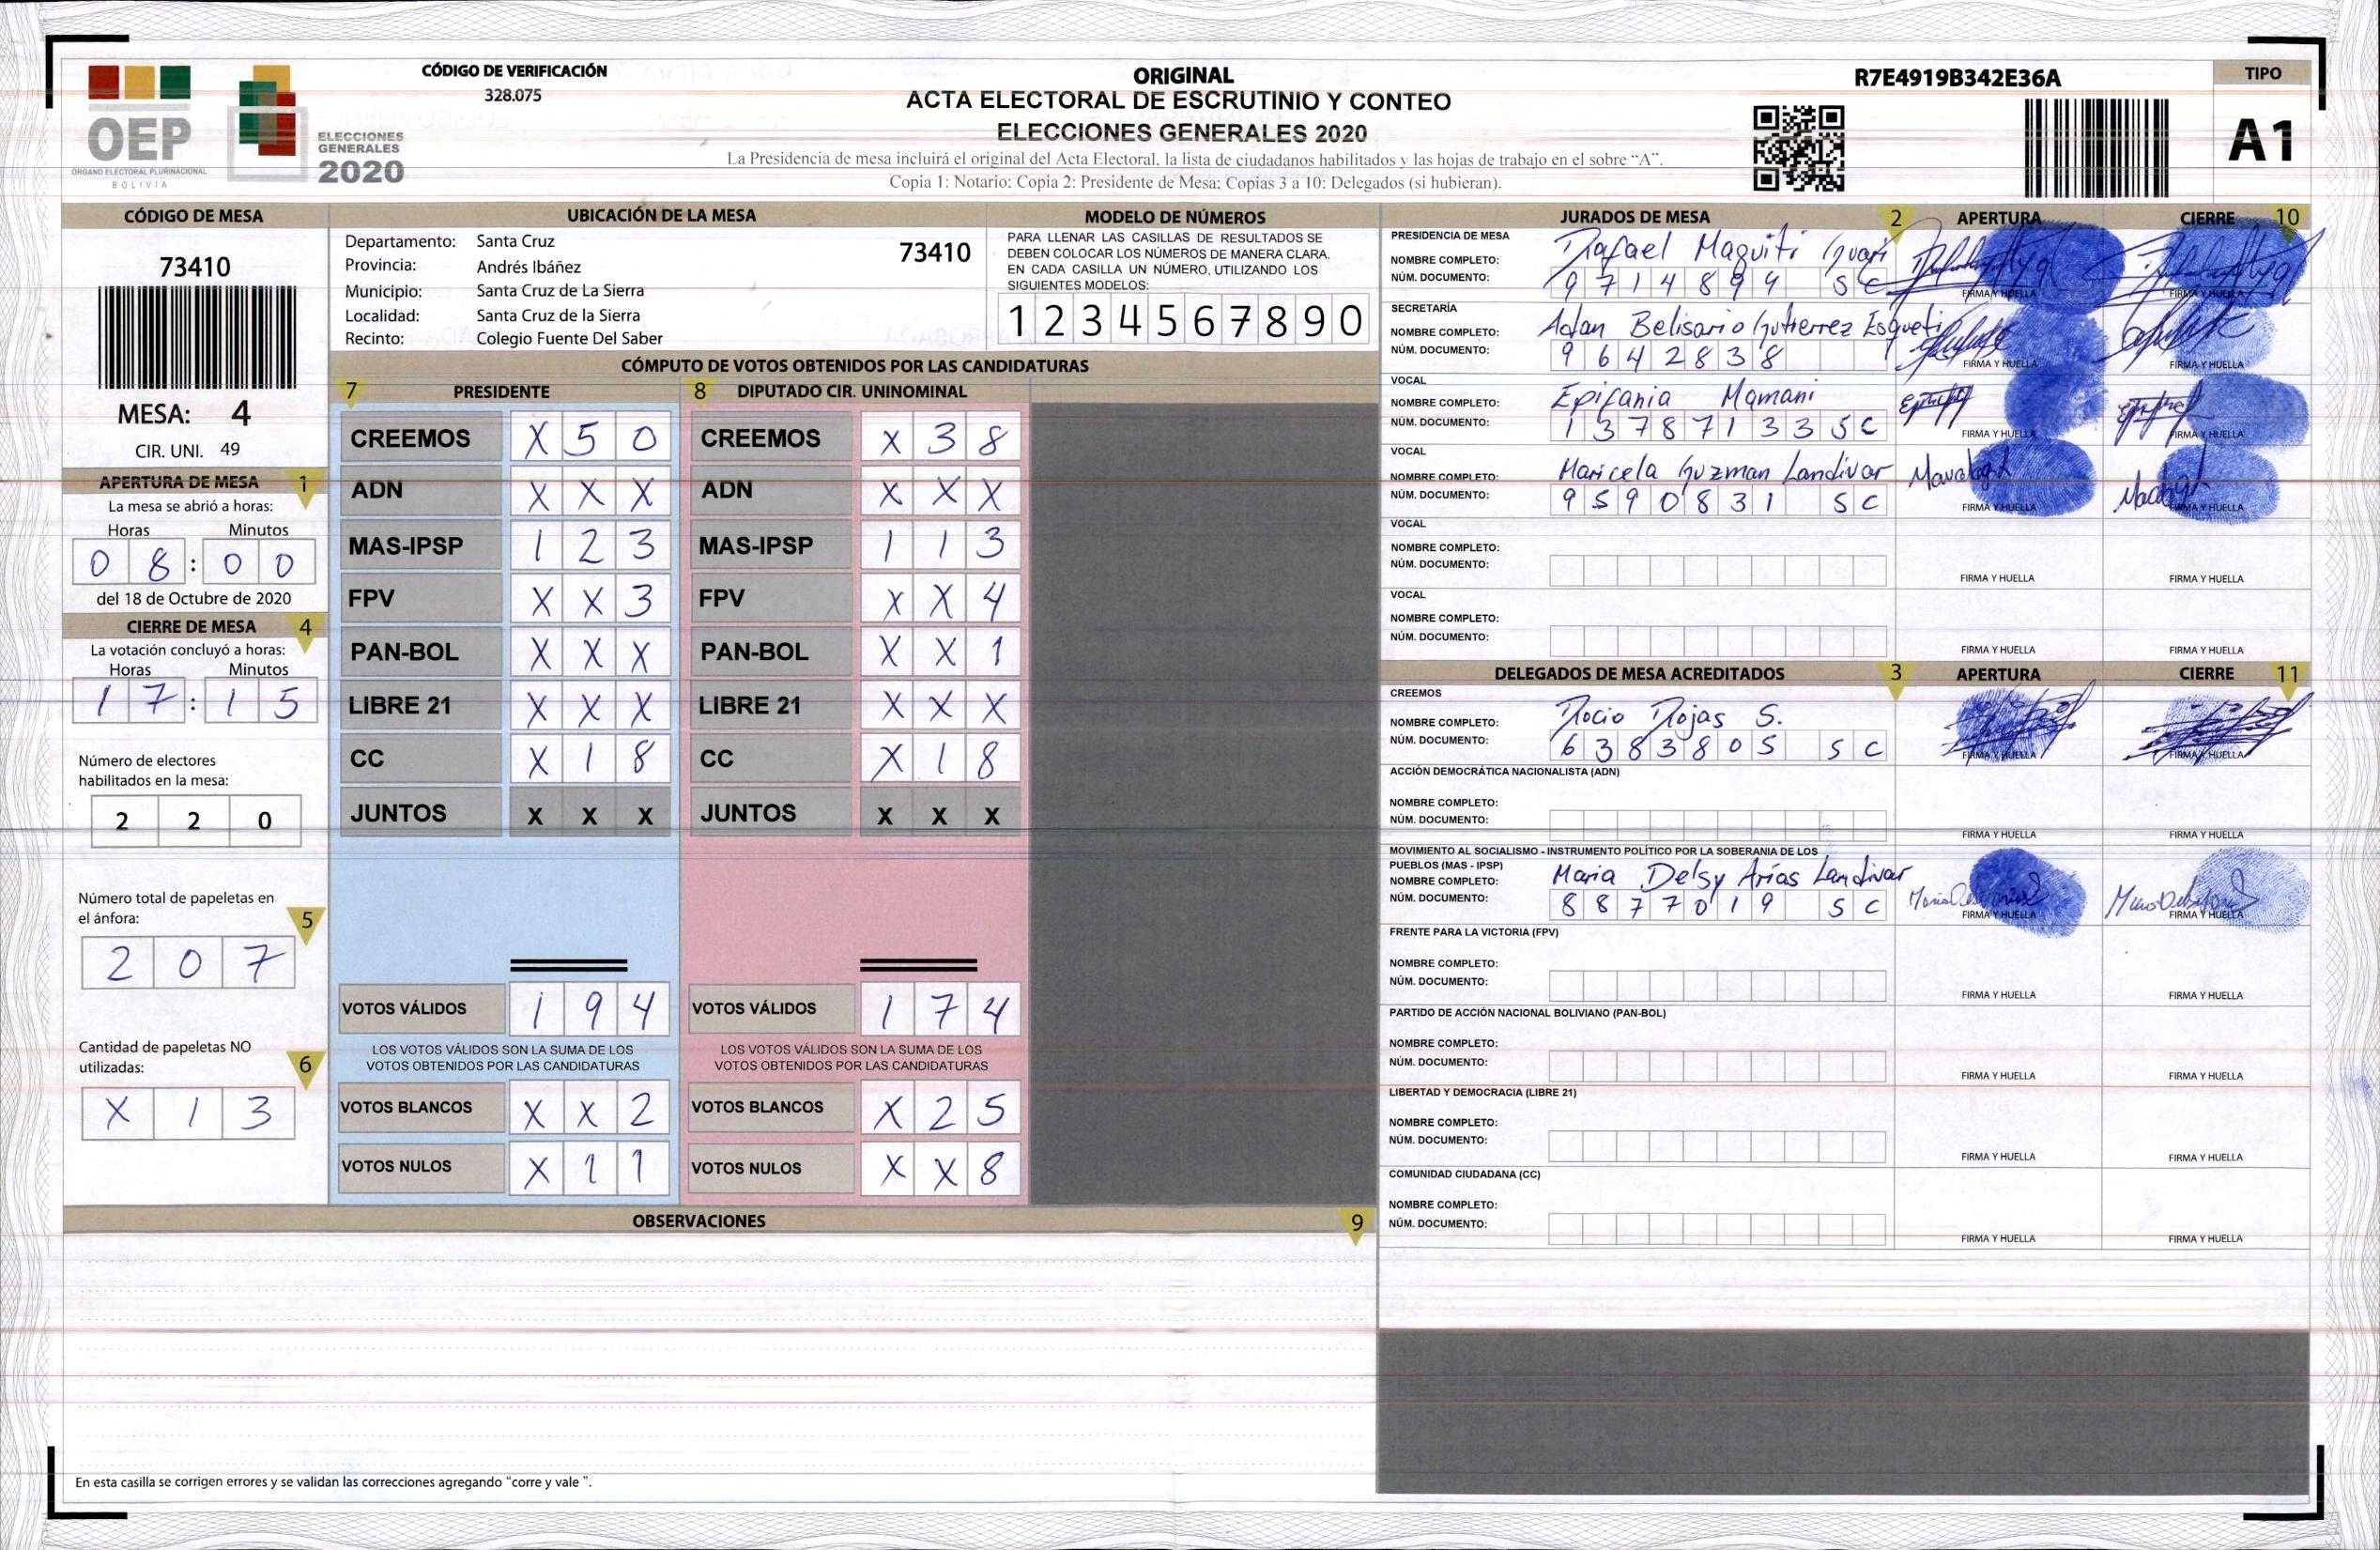 OEP
ÓRGANO ELECTORAL PLURINACIONAL
BOLIVIA
ELECCIONES
GENERALES
2020
CÓDIGO DE VERIFICACIÓN
328.075
ORIGINAL
ACTA ELECTORAL DE ESCRUTINIO Y CONTEO
ELECCIONES GENERALES 2020
La Presidencia de mesa incluirá el original del Acta Electoral, la lista de ciudadanos habilitados y las hojas de trabajo en el sobre “A”.
Copia 1: Notario; Copia 2: Presidente de Mesa; Copias 3 a 10: Delegados (si hubieran).
R7E4919B342E36A
TIPO
A1
CÓDIGO DE MESA
73410
MESA: 4
CIR. UNI. 49
APERTURA DE MESA 1
La mesa se abrió a horas:
Horas Minutos
0 8 : 0 0
del 18 de Octubre de 2020
CIERRE DE MESA 4
La votación concluyó a horas:
Horas Minutos
1 7 : 1 5
Número de electores
habilitados en la mesa:
2 2 0
Número total de papeletas en
el ánfora: 5
2 0 7
Cantidad de papeletas NO
utilizadas: 6
X 1 3
UBICACIÓN DE LA MESA
Departamento: Santa Cruz 73410
Provincia: Andrés Ibáñez
Municipio: Santa Cruz de La Sierra
Localidad: Santa Cruz de la Sierra
Recinto: Colegio Fuente Del Saber
MODELO DE NÚMEROS
PARA LLENAR LAS CASILLAS DE RESULTADOS SE
DEBEN COLOCAR LOS NÚMEROS DE MANERA CLARA.
EN CADA CASILLA UN NÚMERO, UTILIZANDO LOS
SIGUIENTES MODELOS:
1 2 3 4 5 6 7 8 9 0
CÓMPUTO DE VOTOS OBTENIDOS POR LAS CANDIDATURAS
7 PRESIDENTE 8 DIPUTADO CIR. UNINOMINAL
CREEMOS X 5 0 CREEMOS X 3 8
ADN X X X ADN X X X
MAS-IPSP 1 2 3 MAS-IPSP 1 1 3
FPV X X 3 FPV X X 4
PAN-BOL X X X PAN-BOL X X 1
LIBRE 21 X X X LIBRE 21 X X X
CC X 1 8 CC X 1 8
JUNTOS X X X JUNTOS X X X
VOTOS VÁLIDOS 1 9 4 VOTOS VÁLIDOS 1 7 4
LOS VOTOS VÁLIDOS SON LA SUMA DE LOS LOS VOTOS VÁLIDOS SON LA SUMA DE LOS
VOTOS OBTENIDOS POR LAS CANDIDATURAS VOTOS OBTENIDOS POR LAS CANDIDATURAS
VOTOS BLANCOS X X 2 VOTOS BLANCOS X 2 5
VOTOS NULOS X 1 1 VOTOS NULOS X X 8
OBSERVACIONES 9
En esta casilla se corrigen errores y se validan las correcciones agregando “corre y vale ”.
JURADOS DE MESA 2 APERTURA CIERRE 10
PRESIDENCIA DE MESA
NOMBRE COMPLETO: Rafael Maquiti
NÚM. DOCUMENTO: 9 7 1 4 8 9 9 S C FIRMA Y HUELLA FIRMA Y HUELLA
SECRETARÍA
NOMBRE COMPLETO: Adan Belisario Gutierrez
NÚM. DOCUMENTO: 9 6 4 2 8 3 8 FIRMA Y HUELLA FIRMA Y HUELLA
VOCAL
NOMBRE COMPLETO: Epifania Mamani
NÚM. DOCUMENTO: 1 3 7 8 7 1 3 3 S C FIRMA Y HUELLA FIRMA Y HUELLA
VOCAL
NOMBRE COMPLETO: Maricela Guzman Landivar
NÚM. DOCUMENTO: 9 5 9 0 8 3 1 S C FIRMA Y HUELLA FIRMA Y HUELLA
VOCAL
NOMBRE COMPLETO:
NÚM. DOCUMENTO: FIRMA Y HUELLA FIRMA Y HUELLA
VOCAL
NOMBRE COMPLETO:
NÚM. DOCUMENTO: FIRMA Y HUELLA FIRMA Y HUELLA
DELEGADOS DE MESA ACREDITADOS 3 APERTURA CIERRE 11
CREEMOS
NOMBRE COMPLETO: Rocio Rojas S.
NÚM. DOCUMENTO: 6 3 8 3 8 0 5 S C FIRMA Y HUELLA FIRMA Y HUELLA
ACCIÓN DEMOCRÁTICA NACIONALISTA (ADN)
NOMBRE COMPLETO:
NÚM. DOCUMENTO: FIRMA Y HUELLA FIRMA Y HUELLA
MOVIMIENTO AL SOCIALISMO - INSTRUMENTO POLÍTICO POR LA SOBERANIA DE LOS
PUEBLOS (MAS - IPSP)
NOMBRE COMPLETO: Maria Delsy Arias Landivar
NÚM. DOCUMENTO: 8 8 7 7 0 1 9 S C FIRMA Y HUELLA FIRMA Y HUELLA
FRENTE PARA LA VICTORIA (FPV)
NOMBRE COMPLETO:
NÚM. DOCUMENTO: FIRMA Y HUELLA FIRMA Y HUELLA
PARTIDO DE ACCIÓN NACIONAL BOLIVIANO (PAN-BOL)
NOMBRE COMPLETO:
NÚM. DOCUMENTO: FIRMA Y HUELLA FIRMA Y HUELLA
LIBERTAD Y DEMOCRACIA (LIBRE 21)
NOMBRE COMPLETO:
NÚM. DOCUMENTO: FIRMA Y HUELLA FIRMA Y HUELLA
COMUNIDAD CIUDADANA (CC)
NOMBRE COMPLETO:
NÚM. DOCUMENTO: FIRMA Y HUELLA FIRMA Y HUELLA